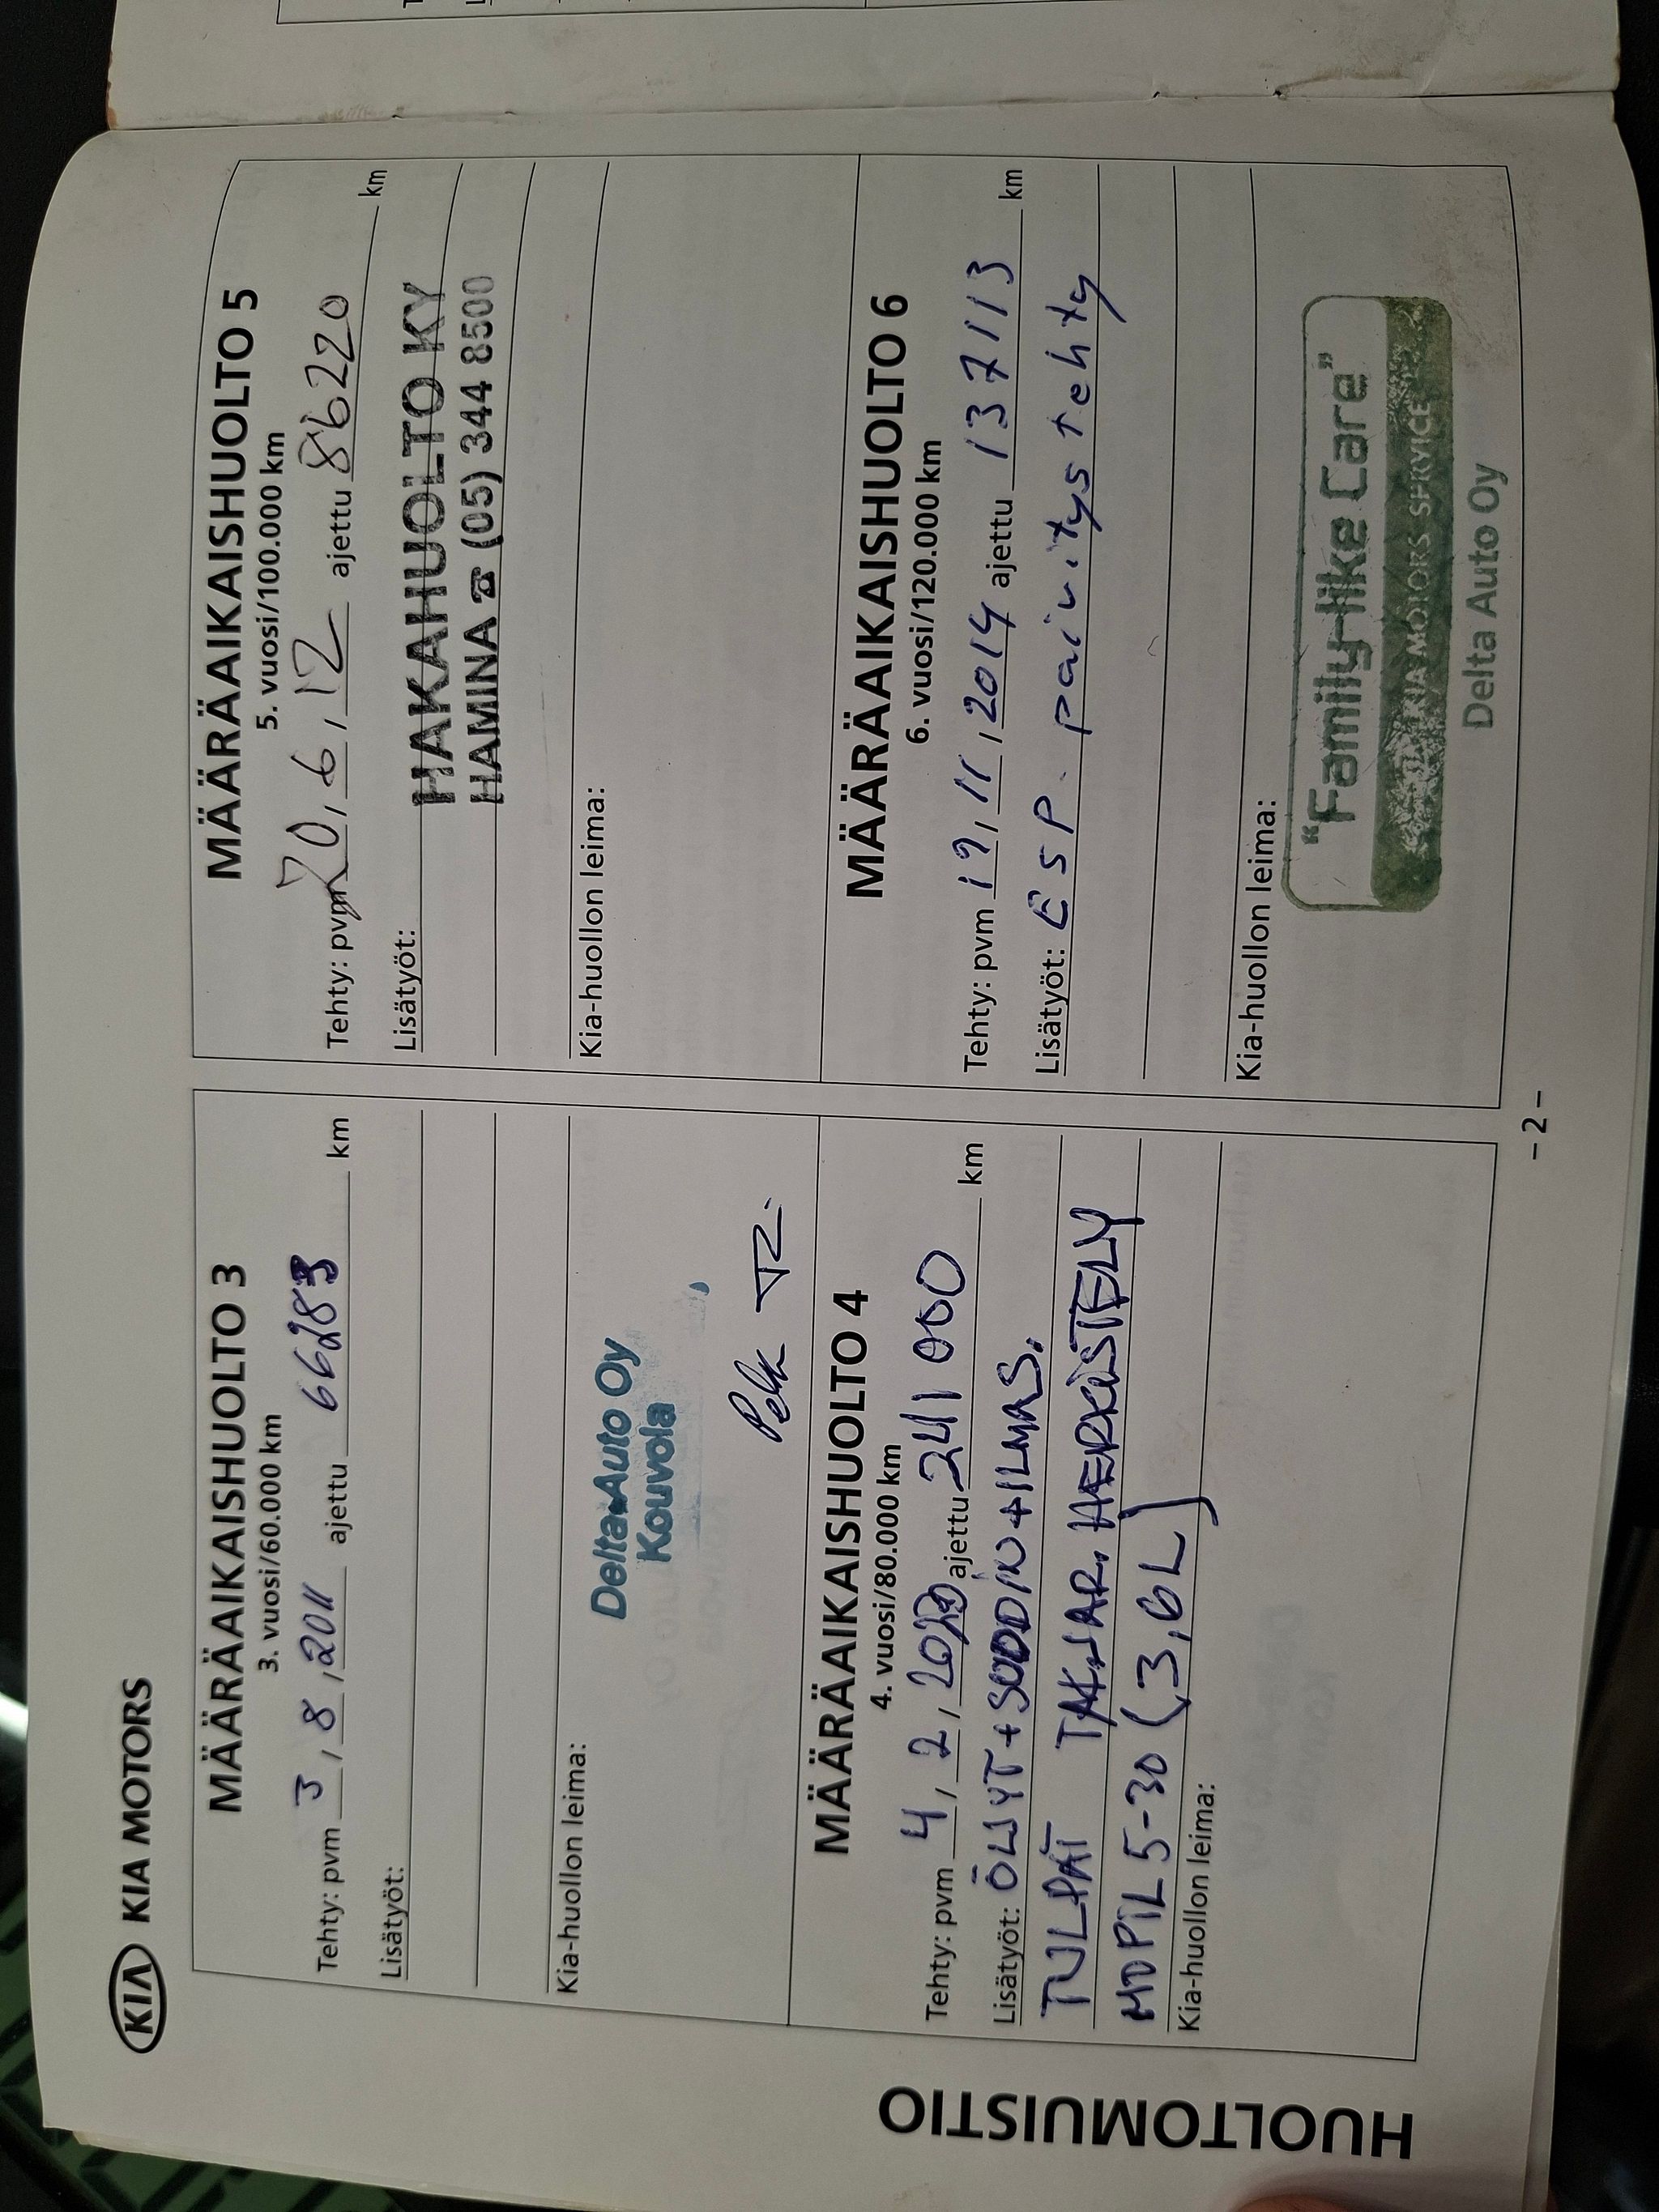 KIA KIA MOTORS
HUOLTOMUISTIO
MÄÄRÄAIKAISHUOLTO 3
3. vuosi/60.000 km
Tehty: pvm 3, 8, 2011 ajettu 66283 km
Lisätyöt:
Kia-huollon leima:
Delta-Auto Oy
Kouvola
MÄÄRÄAIKAISHUOLTO 4
4. vuosi/80.000 km
Tehty: pvm 4, 2, 2020 ajettu 241 000 km
Lisätyöt: ÖLJYT+SUODIN+ILMAS.
TULPAT TAKJAR. HERKISTELY
MOPIL 5-30 (3,6L)
Kia-huollon leima:
MÄÄRÄAIKAISHUOLTO 5
5. vuosi/100.000 km
Tehty: pvm 20, 6, 12 ajettu 86220 km
Lisätyöt:
HAKAHUOLTO KY
HAMINA ☎ (05) 344 8500
Kia-huollon leima:
MÄÄRÄAIKAISHUOLTO 6
6. vuosi/120.000 km
Tehty: pvm 19, 11, 2014 ajettu 137113 km
Lisätyöt: ESP. päivitys tehty
Kia-huollon leima:
"Family-like Care"
KIA MOTORS SERVICE
Delta Auto Oy
– 2 –